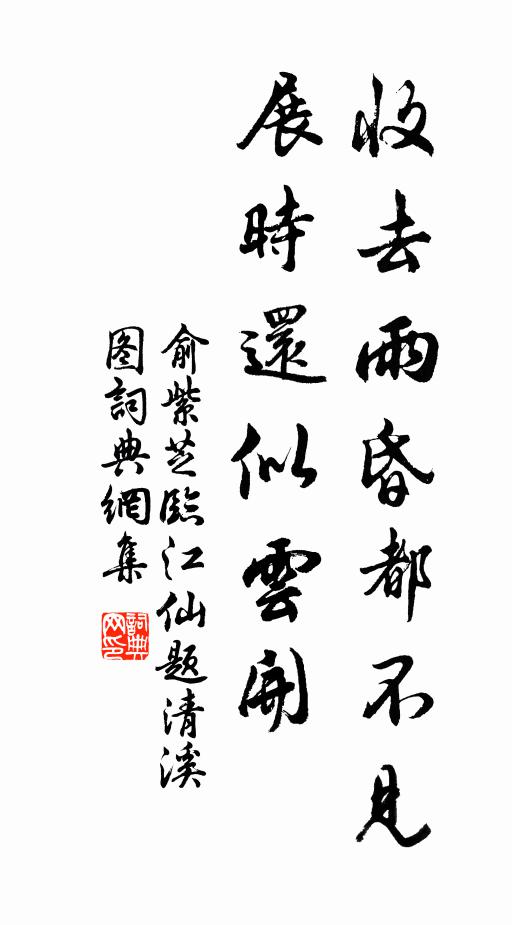 收去雨昏都不見
展時還似雲開
俞紫芝臨江仙題清溪
图詞典網集
詞典网印